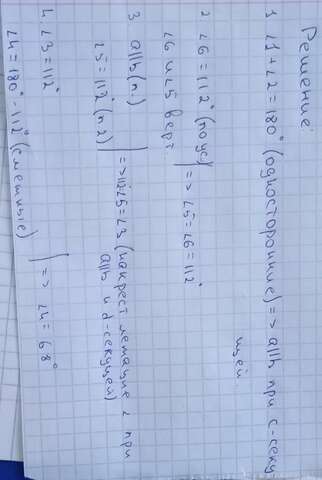 Решение:
1 ∠1+∠2=180° (односторонние) => a||b при c-секу
щей.
2 ∠6=112° (по ус)
∠6 и ∠5 верт. | => ∠5=∠6=112°
3 a||b (п.1)
∠5=112° (п2) | => ∠5=∠3 (накрест лежащие ∠ при
a||b и d-секущей)
4. ∠3=112°
∠4=180°-112° (смежные) | => ∠4=68°